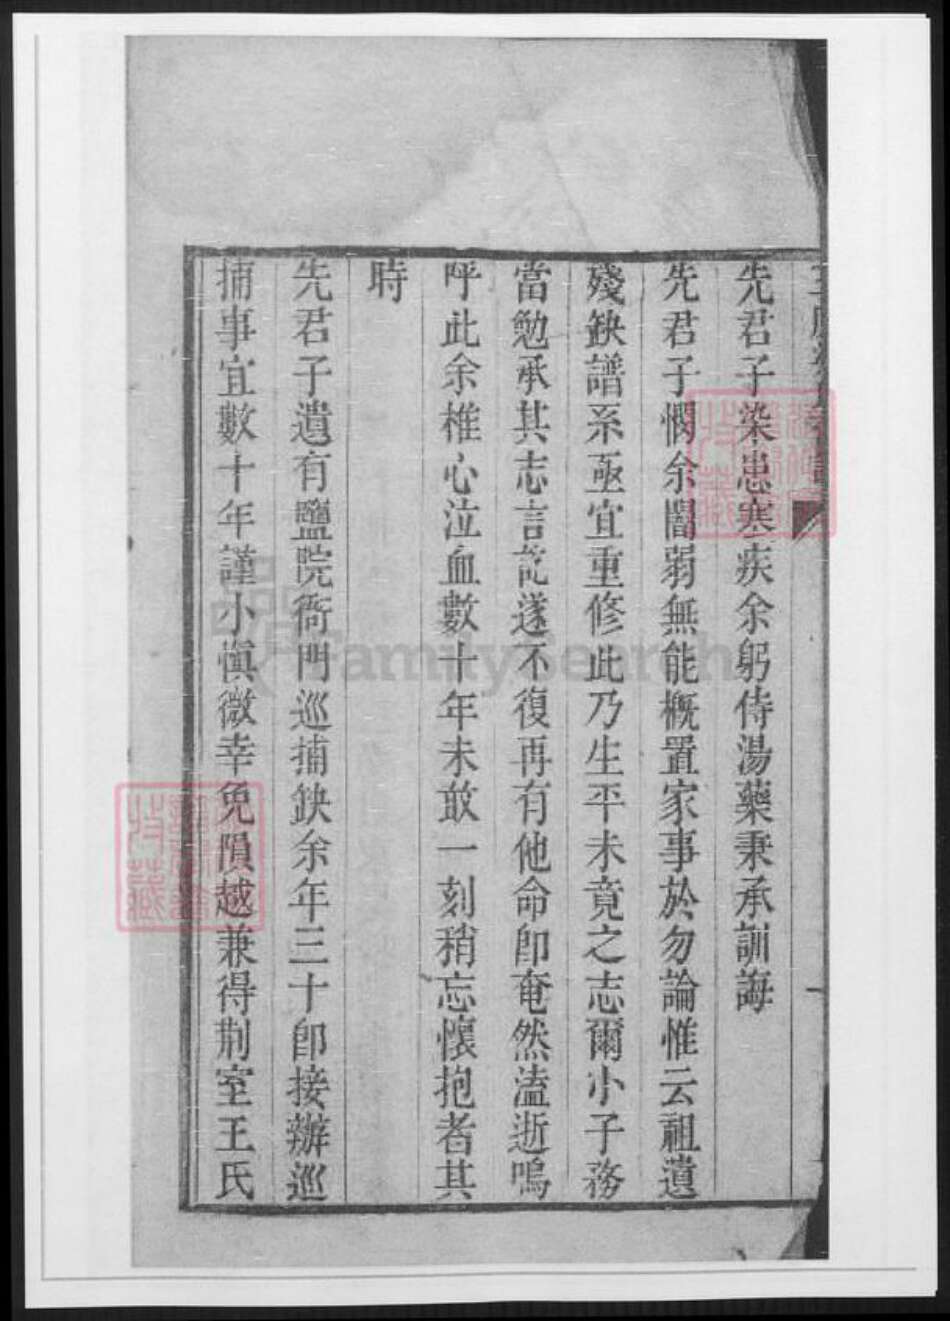 先君子染患寒疾余躬侍湯藥秉承訓誨
先君子憫余闇弱無能概置家事於勿論惟云祖遺
殘缺譜系亟宜重修此乃生平未竟之志爾小子務
當勉承其志言訖遂不復再有他命卽奄然溘逝嗚
呼此余椎心泣血數十年未敢一刻稍忘懷抱者其
時
先君子遺有鹽院衙門巡捕缺余年三十卽接辦巡
捕事宜數十年謹小愼微幸免隕越兼得荆室王氏
FamilySearch